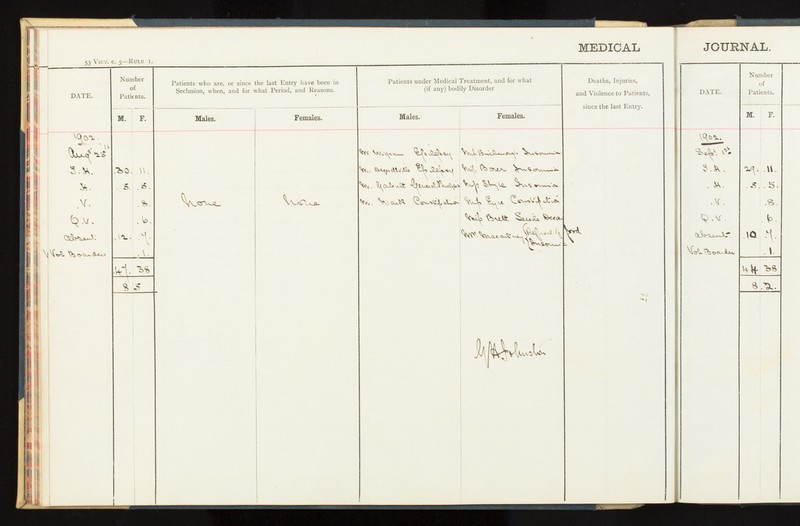 53 VICT. c. 5—RULE 1.
MEDICAL
DATE.
Number
of
Patients.
M. F.
Patients who are, or since the last Entry have been in
Seclusion, when, and for what Period, and Reasons.
Males. Females.
Patients under Medical Treatment, and for what
(if any) bodily Disorder
Males. Females.
Deaths, Injuries,
and Violence to Patients,
since the last Entry.
1902
Augst 25th
S.H. 30. 11.
H. 5. 5.
V. 8.
Q.V. 6.
Absent 12. 7.
Vol Boarder 1.
47. 38
85
None
None
Epilepsy
Mr. Epilepsy
Mr.
Mr. Constipation
Insomnia
Miss Boxer Insomnia
Miss Style Insomnia
Miss Eyre Constipation
Miss Brett Senile Decay
Mrs Refusal of food
Insomnia
JOURNAL.
DATE.
Number
of
Patients.
M. F.
1902.
Sept. 1st
S.H. 29. 11.
H. 5. 5.
V. 8.
Q.V. 6.
Absent 10 7.
Vol. Boarder 1.
44 38
8.2.